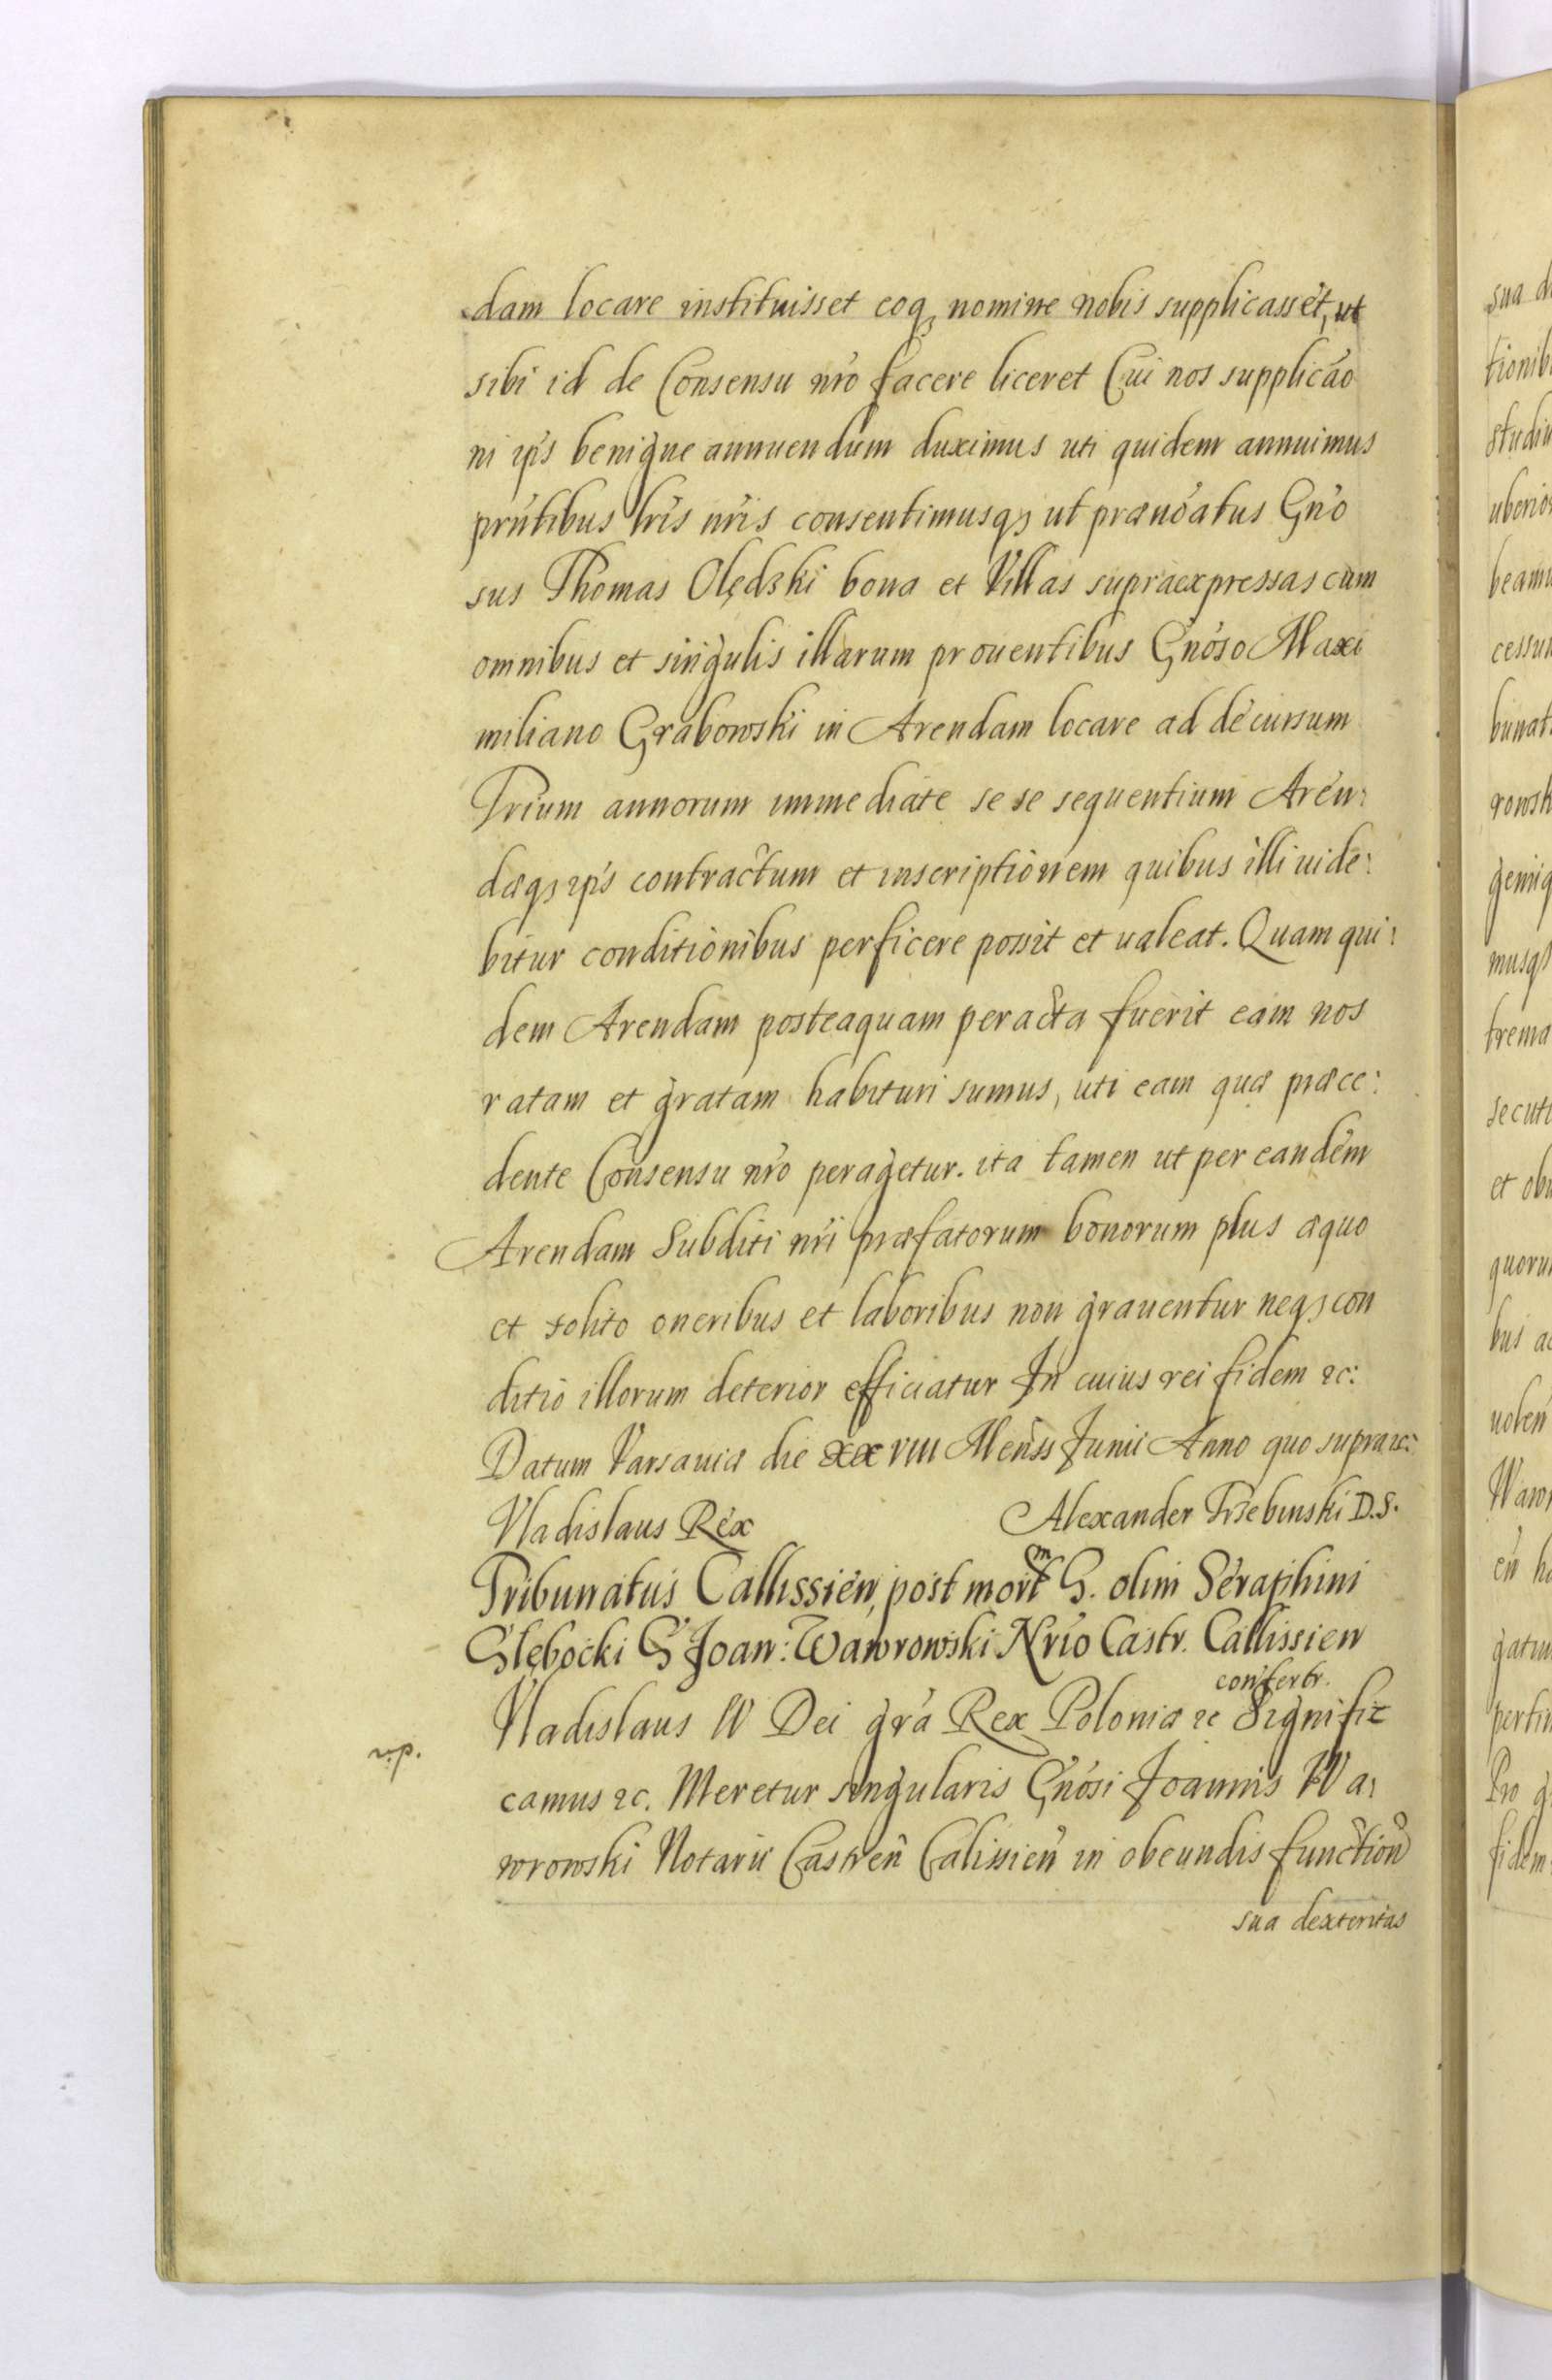 dam locare instituisset eoq, nomine nobis supplicasset, ut
sibi id de Consensu nro facere liceret Cui nos supplicao
ni ips benigne annuendum duximus uti quidem annuimus
prntibus lris nris consentimusq, ut prænoatus Gno
sus Thomas Olędzki bona et Villas supraexpressas cum
omnibus et singulis illarum prouentibus Gnoso Maxi
miliano Grabowski in Arendam locare ad decursum
Trium annorum immediate se se sequentium Aren:
dæq, ips contractum et inscriptionem quibus illi uide:
bitur conditionibus perficere possit et ualeat. Quam qui:
dem Arendam posteaquam peracta fuerit eam nos
ratam et gratam habituri sumus, uti eam quæ præce:
dente Consensu nro peragetur. ita tamen ut per eandem
Arendam Subditi nri præfatorum bonorum plus æquo
et solito oneribus et laboribus non grauentur neq, con
ditio illorum deterior efficiatur In cuius rei fidem &c:
Datum Varsauiæ die XXVIII Menss Junii Anno quo supra &c:
Vladislaus Rex Alexander Trzebinski D.S.
Tribunatus Callissien, post mortm G. olim Seraphini
Glębocki G Joan: Wawrowski Nrio Castr. Callissien
confertr.
Vladislaus IV Dei gra Rex Poloniæ &c Signific
camus &c. Meretur singularis Gnosi Joannis Wa:
wrowski Notarii Castren Calissien in obeundis function
sua dexteritas